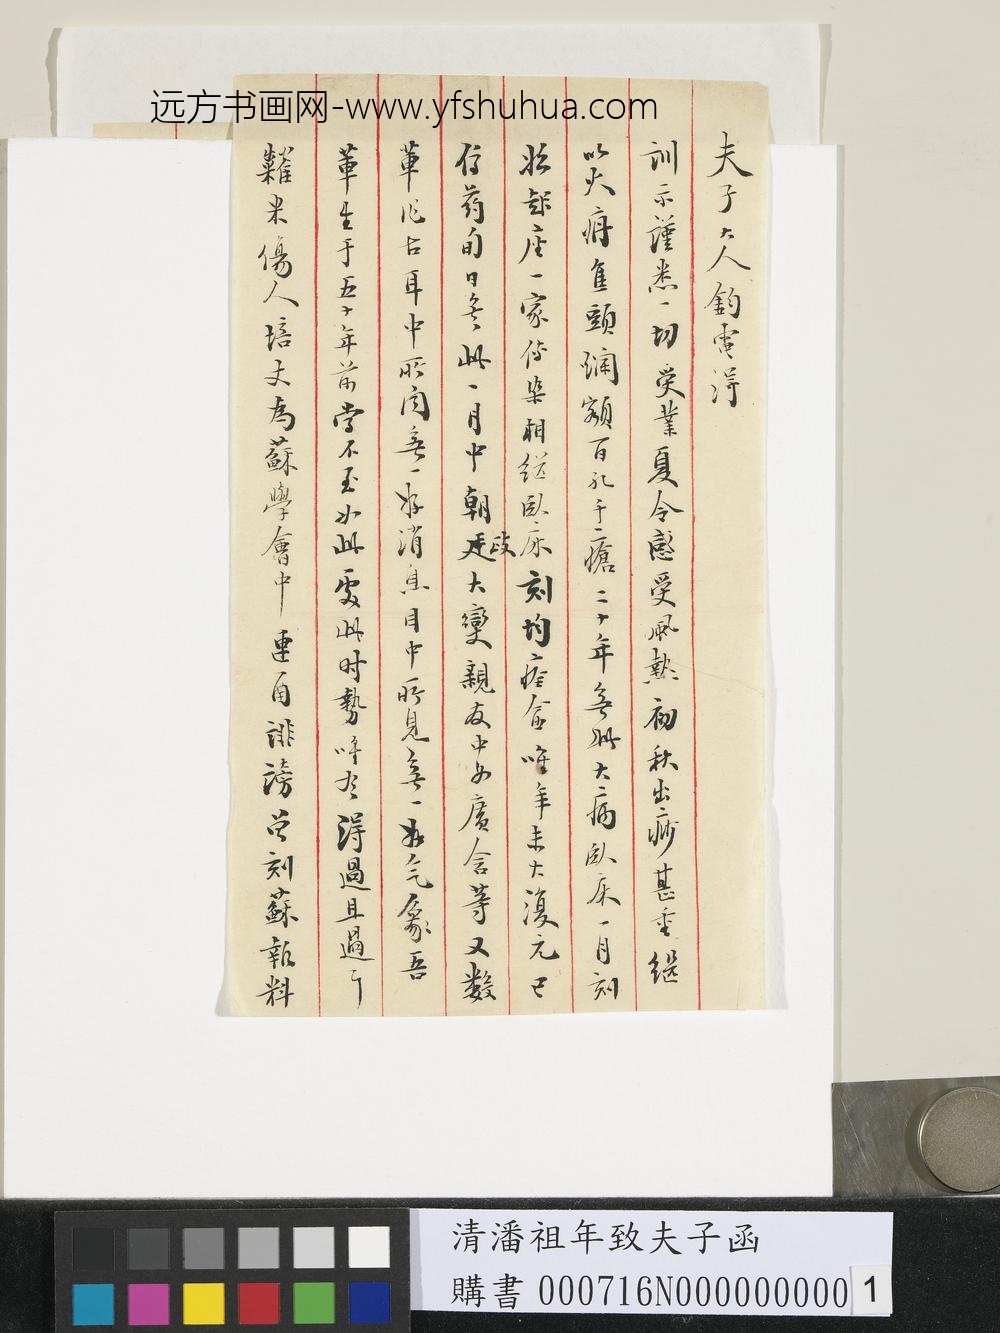 远方书画网-www.yfshuhua.com
夫子大人鈞電得
訓示謹悉一切受業夏令感受風熱初秋出痧甚重繼
以火痹焦頭爛額百孔千瘡二十年無此大病臥床一月刻
始起座一家傳染相繼臥床刻均痊愈唯年未大復元已
停葯旬日矣此一月中朝政大變親友中如廣含等又數
輩作古耳中所聞無一好消息目中所見無一好氣象吾
輩生于五十年前當不至如此處此時勢唯有得過且過
糴米傷人培丈為蘇學會中連角誹謗曾刻蘇報料
清潘祖年致夫子函
購書 000716N000000000 1